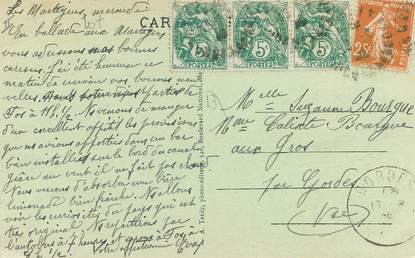 Les Martigues, mercredi
En ballade aux Martigues
vous adressons nos bonnes
caresses. J'ai été heureuse ce
matin de recevoir vos bonnes nou-
velles. partes de
Fos à 11h 1/2. Nous venons de manger
d'un excellent appétit les provisions
que nous avions apportées dans un bar
bien installés sur le bord du canal
grâce au vent il ne fait pas chaud
nous venons d'absorber une bière
limonade bien fraîche. Nous allons
voir les curiosités du pays qui est
très original. Nous repartirons par
l'autobus à 7 heures et à Fos à
Votre affectionnée
CAR
5c
POSTES
5c
POSTES
5c
POSTES
25c
Tardy, photo-éditeur, Boulevard National, Ma
Melle Suzanne Bourgue
Mme Calixte Bourgue
aux Gros
par Gordes
Vse
GORDES